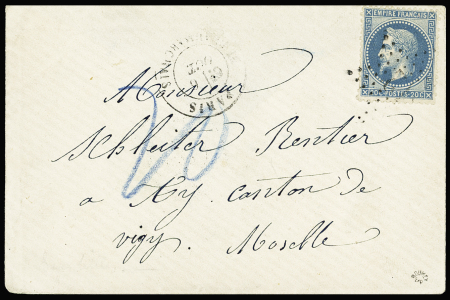 EMPIRE FRANÇAIS
POSTES 20 C
PARIS
Monsieur
Schleiter Rentier
a Ay canton de
vigy. Moselle
20